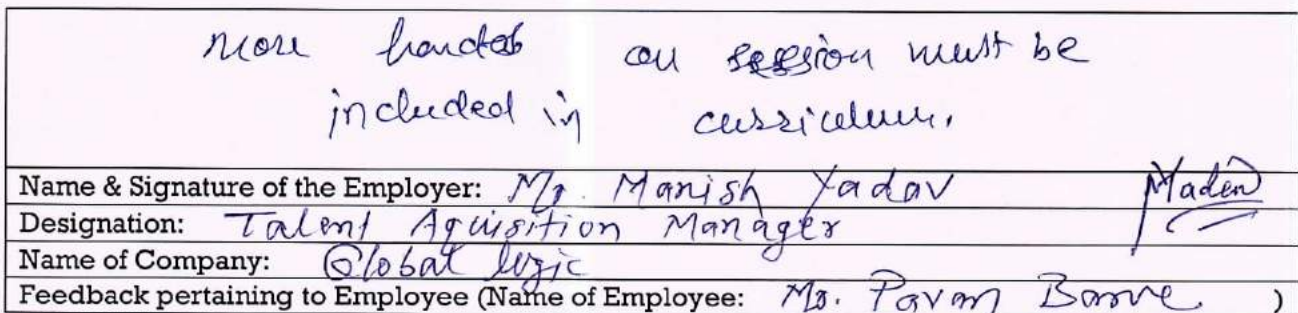 more hands on session must be
included in curriculum.
Name & Signature of the Employer: Mr. Manish Yadav
Designation: Talent Aquisition Manager
Name of Company: Global logic
Feedback pertaining to Employee (Name of Employee: Mr. Pavan Barve )